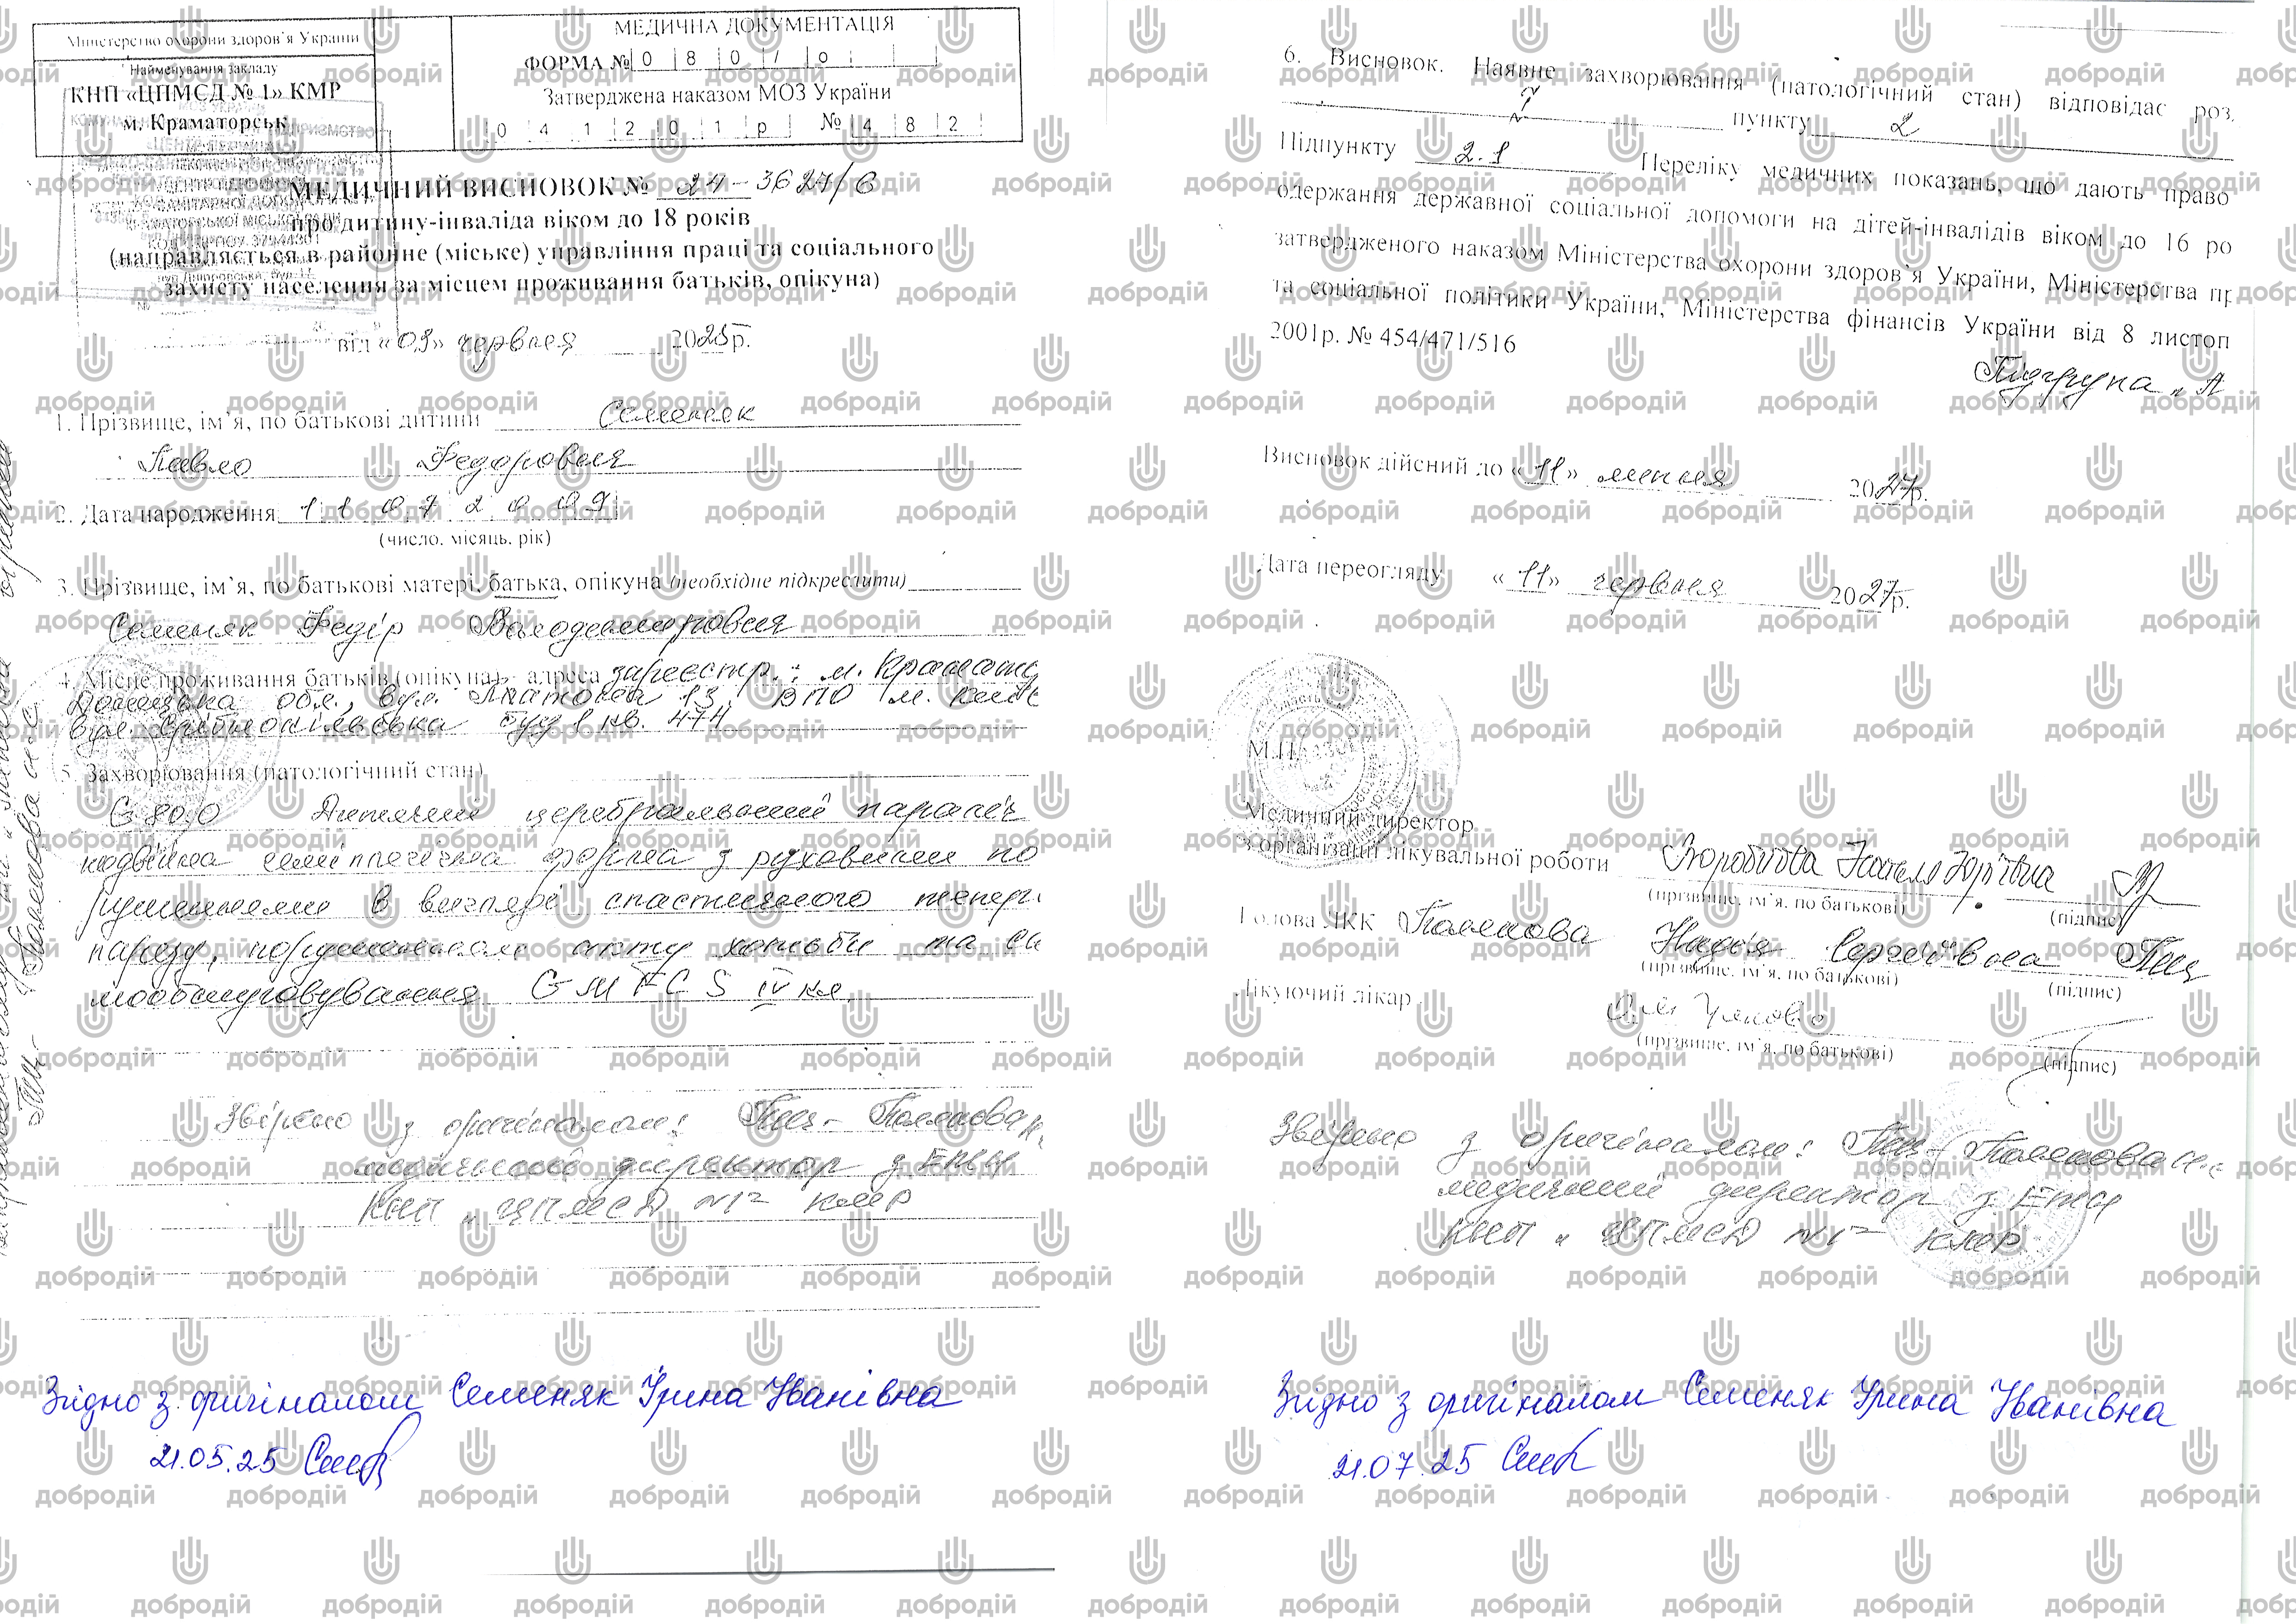 Міністерство охорони здоров'я України
Найменування закладу
КНП «ЦПМСД № 1» КМР
м. Краматорськ
МЕДИЧНА ДОКУМЕНТАЦІЯ
ФОРМА № 0 8 0 / о
Затверджена наказом МОЗ України
0 4 1 2 0 1 р № 4 8 2
МЕДИЧНИЙ ВИСНОВОК № 24-3627/6
про дитину-інваліда віком до 18 років
(направляється в районне (міське) управління праці та соціального
захисту населення за місцем проживання батьків, опікуна)
від «09» червня 2025р.
1. Прізвище, ім'я, по батькові дитини Семеняк
Павло Федорович
2. Дата народження 1 1 0 7 2 0 0 9
(число, місяць, рік)
3. Прізвище, ім'я, по батькові матері, батька, опікуна (необхідне підкреслити)
Семеняк Федір Володимирович
4. Місце проживання батьків (опікуна): адреса зареєстр.: м. Крамато
Донецька обл., вул. 13, ВПО м. Київ
вул. Срібнокільська буд 1 кв. 474
5. Захворювання (патологічний стан)
G 80.0 Дитячий церебральний параліч
подвійна геміплегічна форма з руховими по
рушеннями в вигляді спастичного тетра
парезу, порушенням акту ходьби та са
мообслуговування GMFCS IV кл.
Звірено з оригіналом: Полякова Н.
медичний директор з ЕТН
КНП "ЦПМСД №1" КМР
Згідно з оригіналом Семеняк Ірина Іванівна
21.05.25
6. Висновок. Наявне захворювання (патологічний стан) відповідає роз.
пункту 2
Підпункту 2.1 Переліку медичних показань, що дають право
одержання державної соціальної допомоги на дітей-інвалідів віком до 16 ро
затвердженого наказом Міністерства охорони здоров'я України, Міністерства пр
та соціальної політики України, Міністерства фінансів України від 8 листоп
2001р. № 454/471/516
Підгрупа „А
Висновок дійсний до «11» липня 2027р.
Дата переогляду «11» червня 2027р.
М.П.
Медичний директор
з організації лікувальної роботи Воробйова Наталя Юріївна
(прізвище, ім'я, по батькові) (підпис)
Голова ЛКК Полякова Надія Сергіївна
(прізвище, ім'я, по батькові) (підпис)
Лікуючий лікар
(прізвище, ім'я, по батькові) (підпис)
Звірено з оригіналом: Полякова Н.С
медичний директор з ЕТН
КНП "ЦПМСД №1" КМР
Згідно з оригіналом Семеняк Ірина Іванівна
21.07.25
добродій